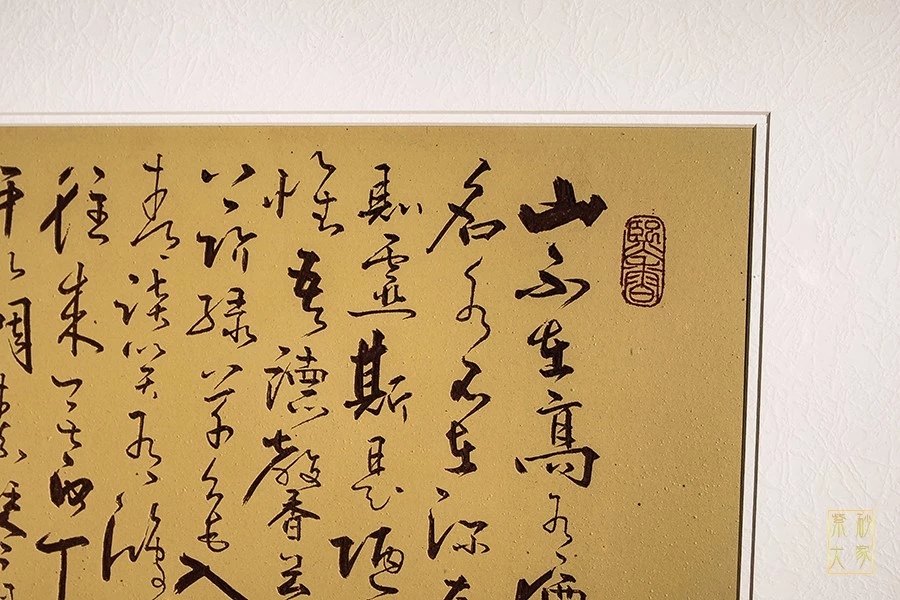 山不在高有僊
名水不在深有
則靈斯是陋
惟吾德馨苔
上階綠草色入
青談笑有鴻
往來無白丁
可以調素琴
紫砂
大家